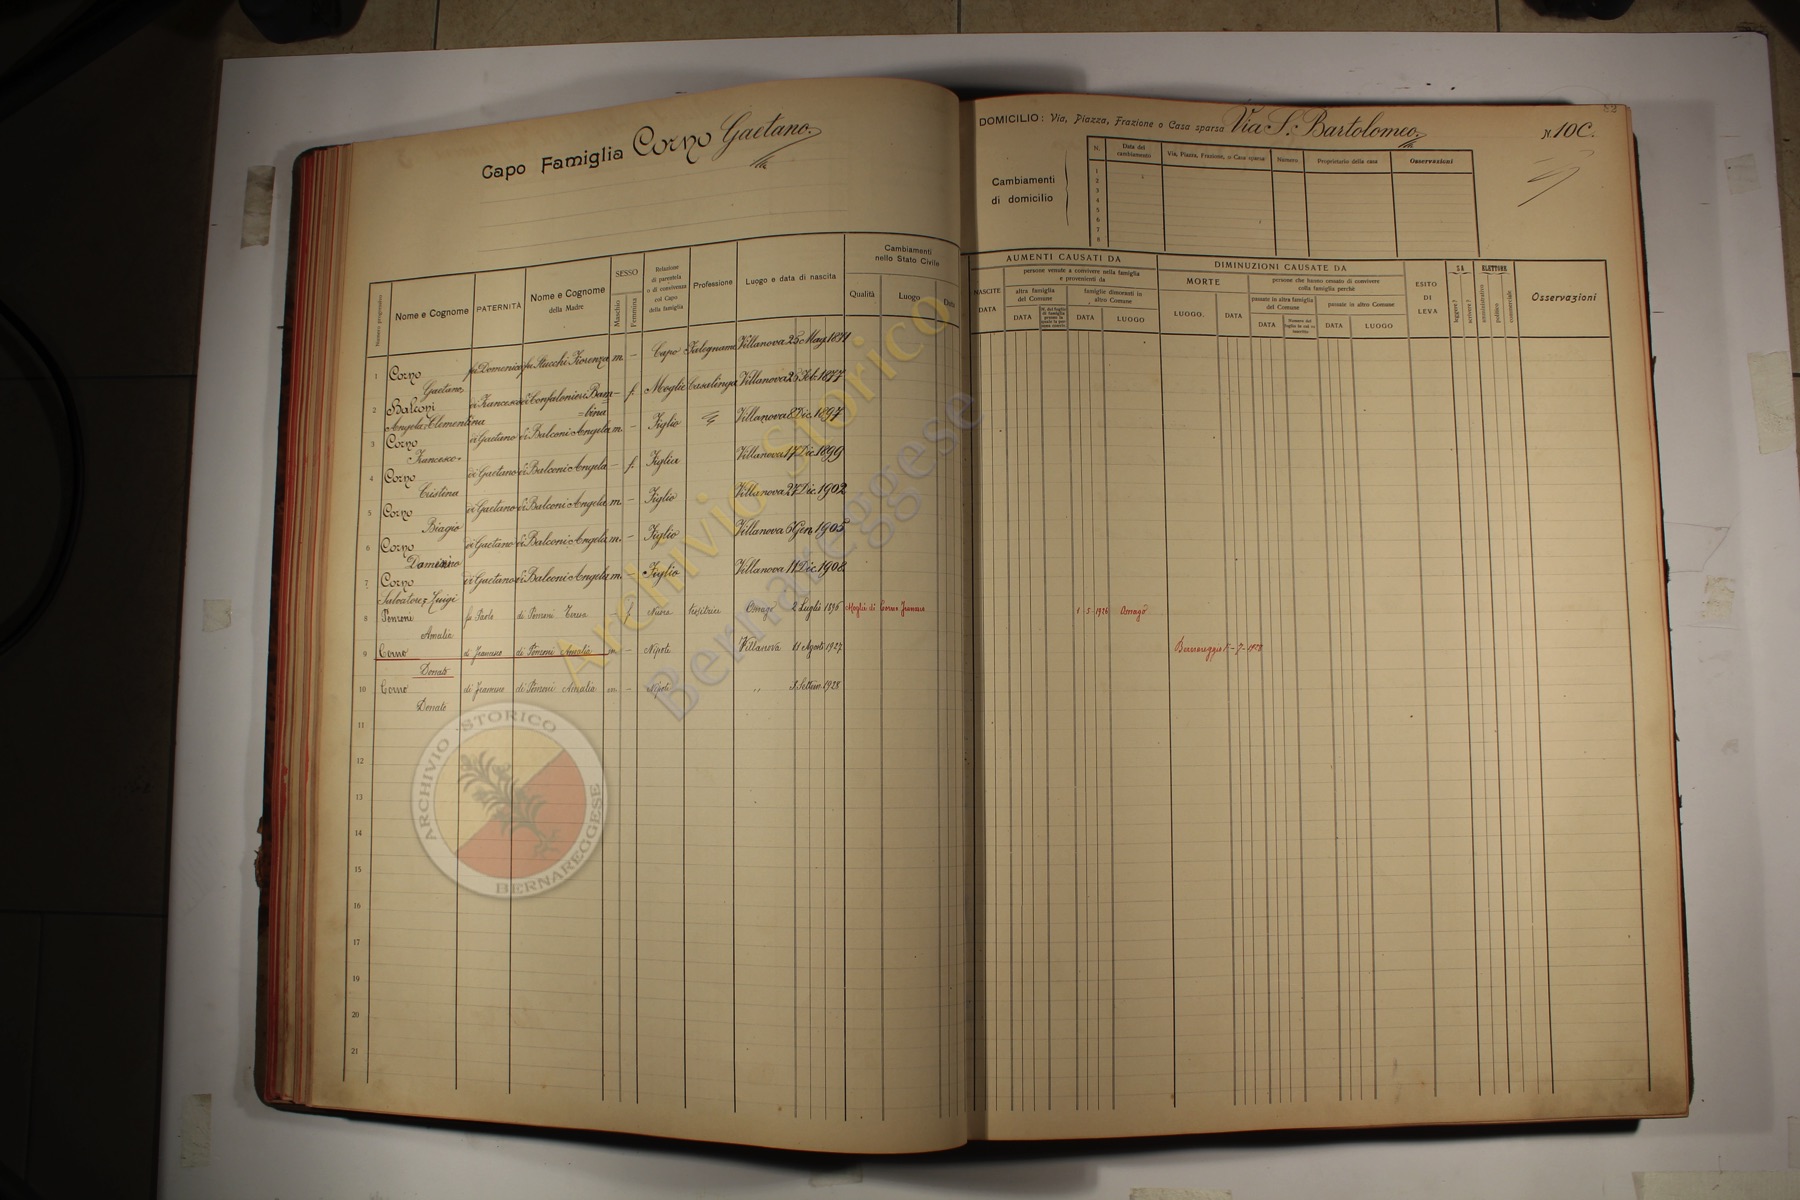 Capo Famiglia Corno Gaetano
DOMICILIO: Via, Piazza, Frazione o Casa sparsa Via S. Bartolomeo N. 10C.
82
Cambiamenti di domicilio
N. Data del cambiamento Via, Piazza, Frazione, o Casa sparsa Numero Proprietario della casa Osservazioni
1
2
3
4
5
6
7
8
Numero progressivo Nome e Cognome PATERNITÀ Nome e Cognome della Madre SESSO Maschio Femmina Relazione di parentela o di convivenza col Capo della famiglia Professione Luogo e data di nascita Cambiamenti nello Stato Civile Qualità Luogo Data
NASCITE DATA AUMENTI CAUSATI DA persone venute a convivere nella famiglia e provenienti da altra famiglia del Comune DATA famiglie dimoranti in altro Comune DATA LUOGO
DIMINUZIONI CAUSATE DA MORTE LUOGO. DATA persone che hanno cessato di convivere colla famiglia perchè passate in altra famiglia del Comune DATA passate in altro Comune DATA LUOGO
ESITO DI LEVA SA leggere? scrivere? ELETTORE amministrativo politico commerciale Osservazioni
1 Corno Gaetano fu Domenico fu Stucchi Fiorenza m. – Capo Falegname Villanova 25 Mag. 1871
2 Balconi Angela Clementina di Francesco di Confalonieri Bam=bina – f. Moglie Casalinga Villanova 25 Feb. 1877
3 Corno Francesco di Gaetano di Balconi Angela m. – Figlio Villanova 8 Dic. 1897
4 Corno Cristina di Gaetano di Balconi Angela – f. Figlia Villanova 17 Dic. 1899
5 Corno Biagio di Gaetano di Balconi Angela m. – Figlio Villanova 27 Dic. 1902
6 Corno Damiano di Gaetano di Balconi Angela m. – Figlio Villanova 6 Gen. 1905
7 Corno Salvatore Luigi di Gaetano di Balconi Angela m. – Figlio Villanova 11 Dic. 1908
8 Amalia fu Paolo di f. Nuora tessitrice Omago 2 Luglio 1896 Moglie di Corno Francesco 1 5 1926 Ornago
9 Corno Donato di Francesco di Amalia m – Nipote Villanova 11 Agosto 1927 Bernareggio 7-1928
10 Corno Donato di Francesco di Amalia m – Nipote " Settem 1928
11
12
13
14
15
16
17
18
19
20
21
Archivio Storico
Bernareggese
ARCHIVIO STORICO BERNAREGGESE